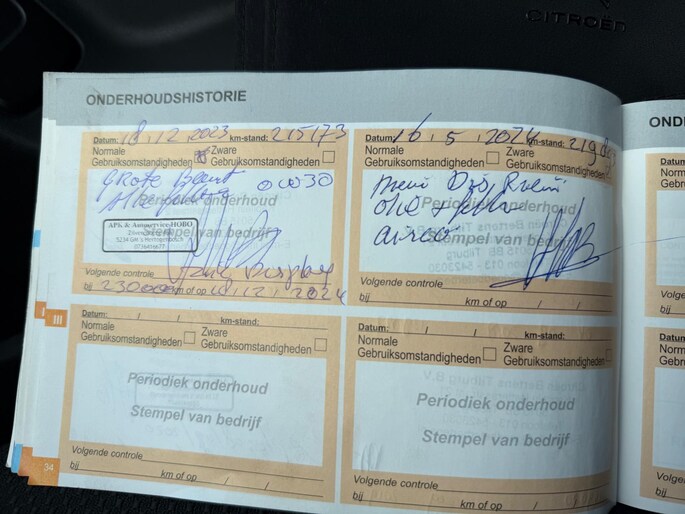 CITROËN
ONDERHOUDSHISTORIE
OND
Datum: 18.12.2023 km-stand: 215173
Normale
Gebruiksomstandigheden
Zware
Gebruiksomstandigheden
Grote Beurt 0W30
Periodiek onderhoud
Stempel van bedrijf
APK & Autoservice HOBO
5234 GR 's Hertogenbosch
Volgende controle
bij 230000 km of op 18/12/2024
Datum: 16.5.2024 km-stand:
Normale
Gebruiksomstandigheden
Zware
Gebruiksomstandigheden
olie + filter
airco
Periodiek onderhoud
Stempel van bedrijf
Volgende controle
bij km of op / /
Datum: / / km-stand:
Normale
Gebruiksomstandigheden
Zware
Gebruiksomstandigheden
Periodiek onderhoud
Stempel van bedrijf
Volgende controle
bij km of op / /
Datum: / / km-stand:
Normale
Gebruiksomstandigheden
Zware
Gebruiksomstandigheden
Periodiek onderhoud
Stempel van bedrijf
Volgende controle
bij km of op / /
III
34